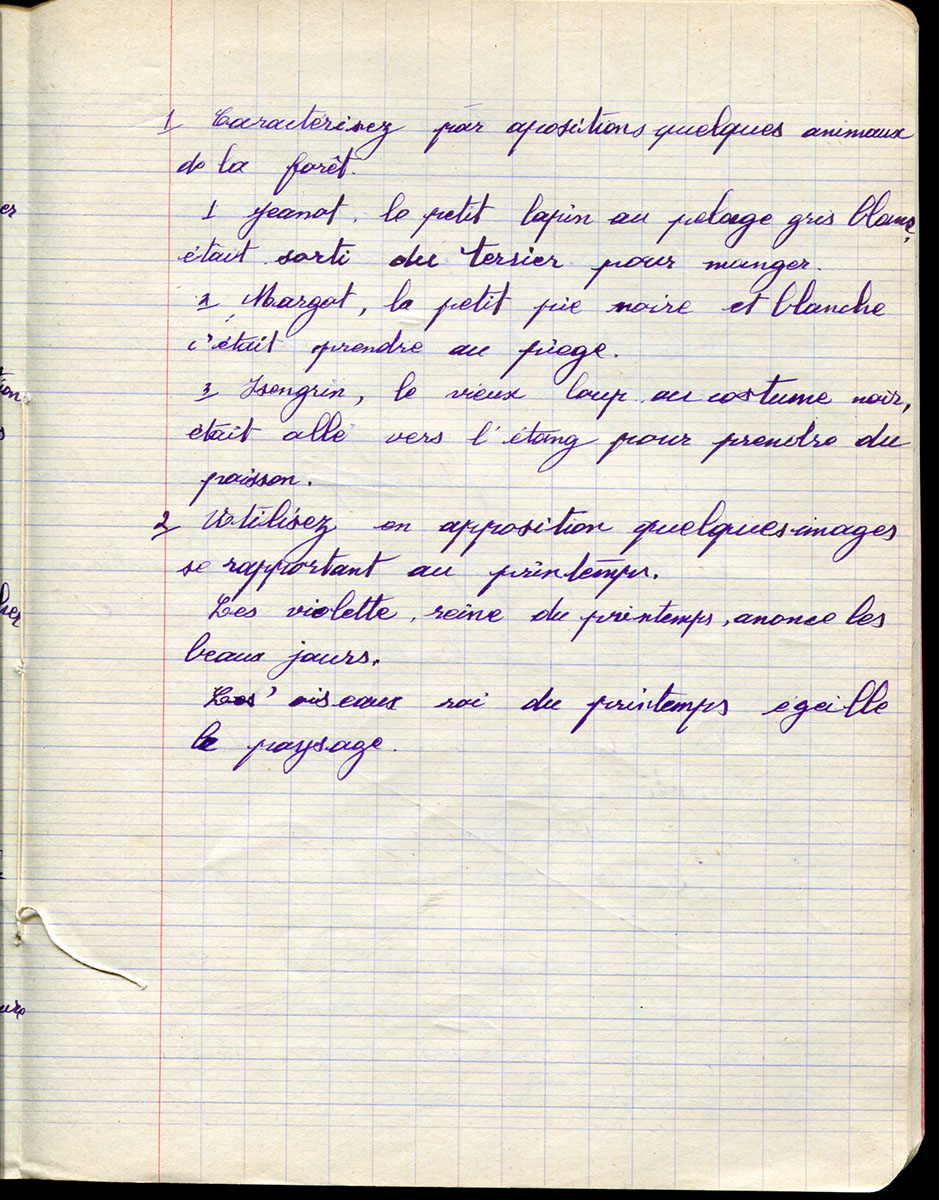 1 Caractérisez par apositions quelques animaux
de la forêt.
1 Jeanot, le petit lapin au pelage gris blanc,
était sorti du terrier pour manger.
2 Margot, la petit pie noire et blanche
c'était prendre au piège.
3 Isengrin, le vieux loup au costume noir,
était allé vers l'étang pour prendre du
poisson.
2 Utilisez en apposition quelques images
se rapportant au printemps.
Les violette, reine du printemps, anonce les
beaux jours.
Les' oiseaux roi du printemps égeille
le paysage.
er
tion
her
ure